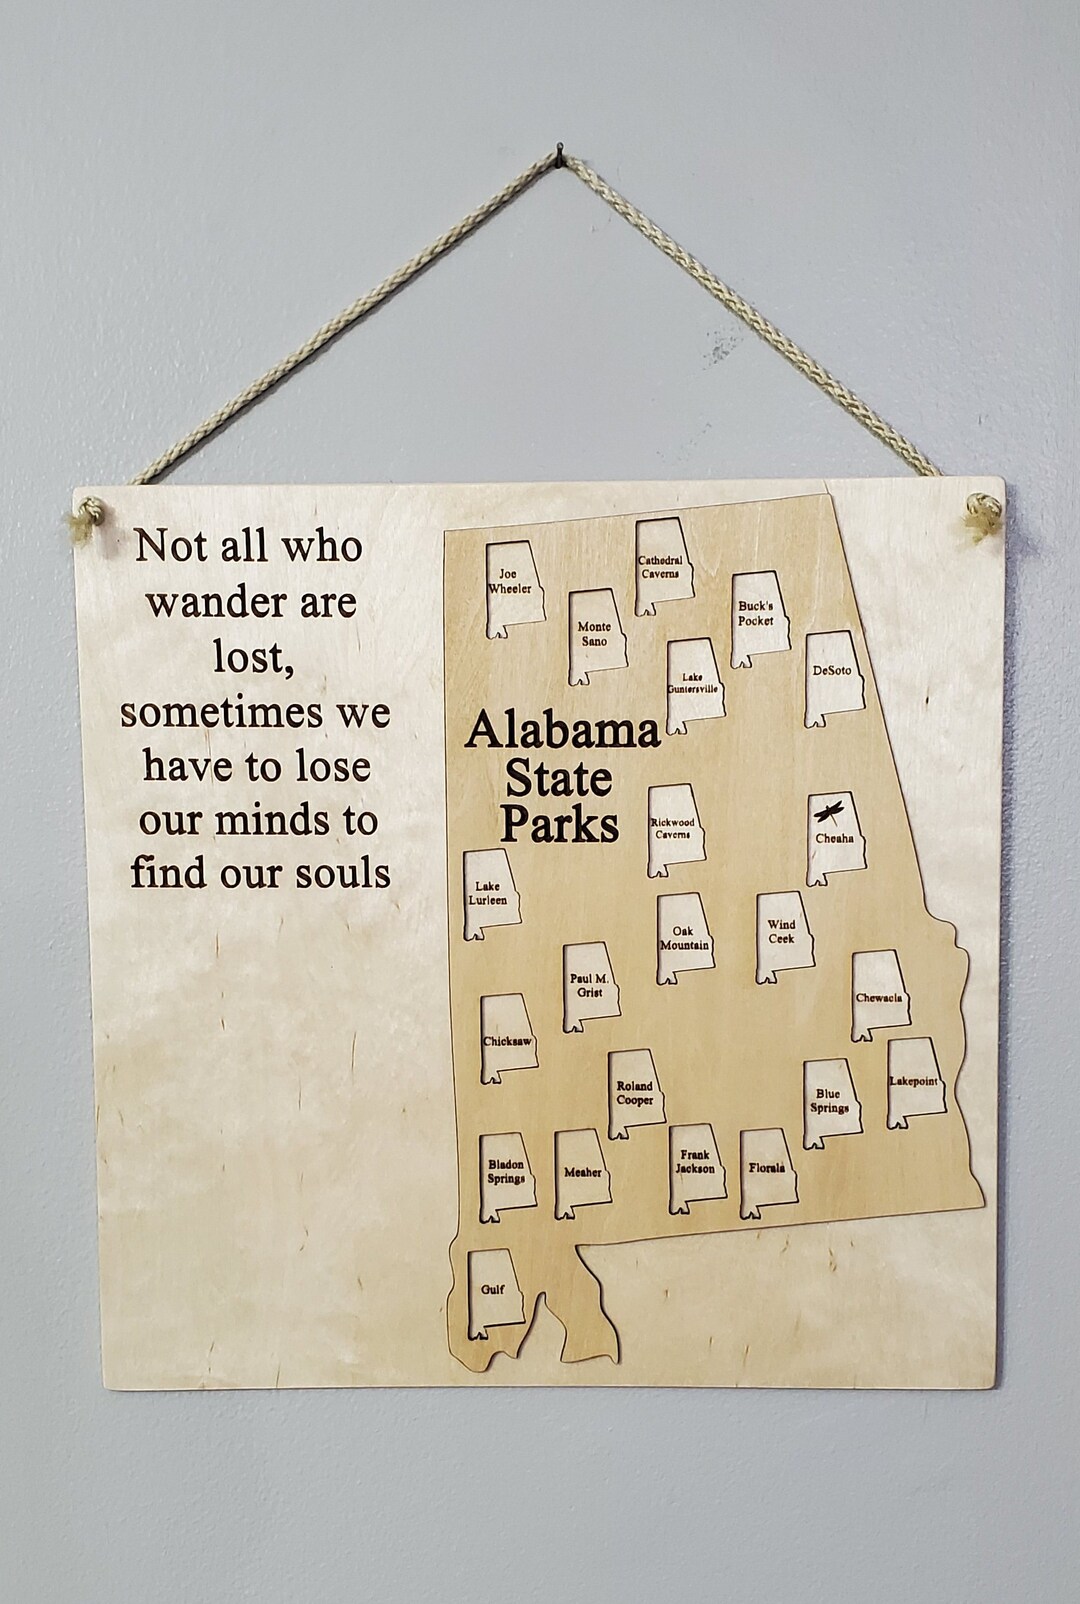 Not all who
wander are
lost,
sometimes we
have to lose
our minds to
find our souls
Alabama
State
Parks
Joe
Wheeler
Cathedral
Caverns
Monte
Sano
Buck's
Pocket
Lake
Guntersville
DeSoto
Rickwood
Caverns
Cheaha
Lake
Lurleen
Oak
Mountain
Wind
Ceek
Paul M.
Grist
Chewacla
Chicksaw
Roland
Cooper
Blue
Springs
Lakepoint
Bladon
Springs
Meaher
Frank
Jackson
Florala
Gulf